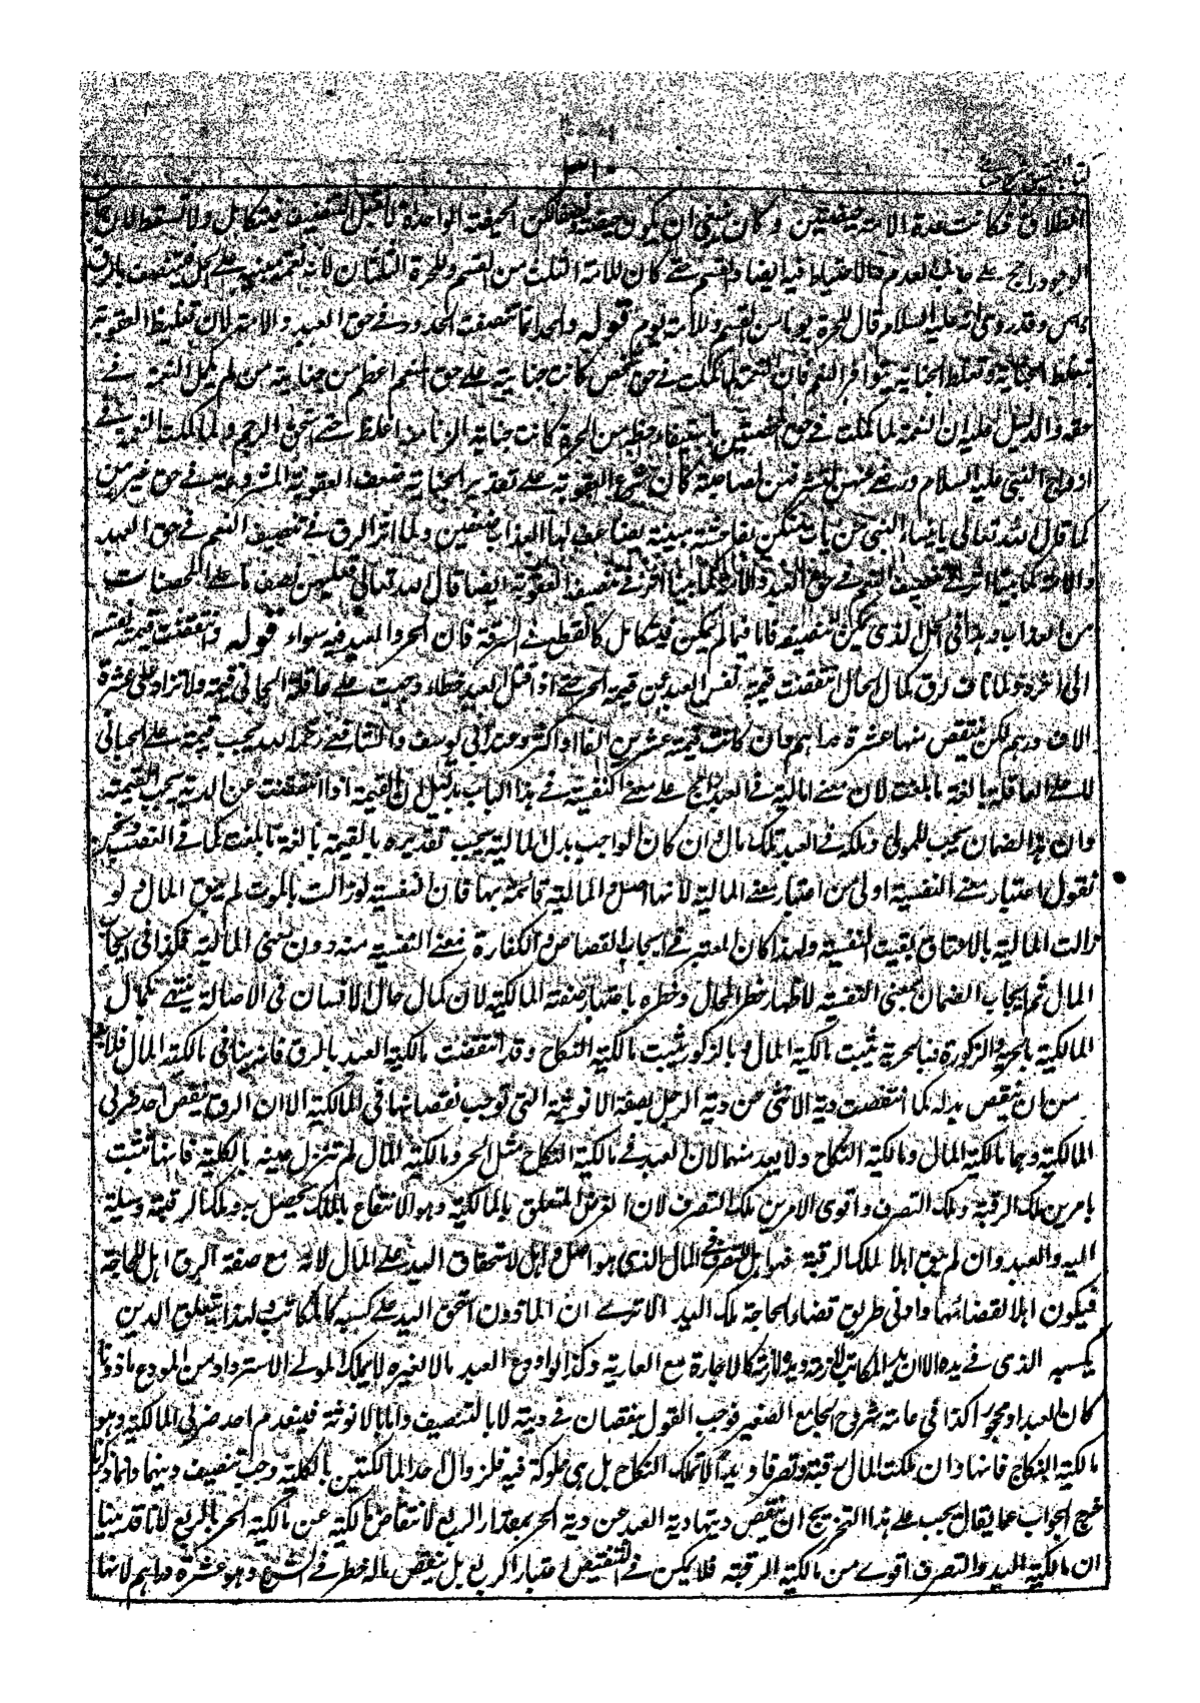 الطلاق فكانت عدة الامة حيضتين وكان ينبغي ان يكون حيضة ونصفا لكن الحيضة الواحدة لا تقبل التنصيف فيتكامل ولا تسقط لان
الوجود راجح على جانب العدم والاحتياط فيه ايضا والقسم حتى كان للامة الثلث من القسم وللحرة الثلثان لانه نعمة مبنية على الحل فيتنصف بالرق
وقد روى انه عليه السلام قال للحرة يومان من القسم وللامة يوم قوله وانما تنصفت الحدود في حق العبد والامة لان تغليظ العقوبة
بتغلظ الجناية وتغلظ الجناية بتوافر النعم فان النعمة لما كملت في حق شخص كانت جنايته على حق المنعم اعظم من جناية من لم تكمل النعمة في
حقه والدليل عليه ان النعمة لما كملت في حق المحصنين باستيفاء حظه من الحرة كانت جناية الزنا منه اغلظ حتى استحق الرجم ولما كملت النعمة في
ازواج النبي عليه السلام ورضي عنهن كان شرع العقوبة على تقدير الجناية ضعف العقوبة المشروعة في حق غيرهن
كما قال الله تعالى يانساء النبي من يات منكن بفاحشة مبينة يضاعف لها العذاب ضعفين ولما اثر الرق في تنصيف النعم في حق العبد
والامة كما بينا اثر في تنصيف العقوبة ايضا قال الله تعالى فعليهن نصف ما على المحصنات
من العذاب وهذا في الحد الذي يمكن تنصيفه فاما فيما لم يمكن فيتكامل كالقطع في السرقة فان الحر والعبد فيه سواء قوله وانتقصت قيمة نفسه
الى اخره ولمنافاة الرق كمال الحال انتقصت قيمة نفس العبد عن قيمة الحر حتى اذا قتل العبد خطاء وجبت على عاقلة الجاني قيمته ولا تزاد على عشرة
الاف درهم لكن ينتقص منها عشرة دراهم وان كانت قيمته عشرين الفا او اكثر وعند ابي يوسف والشافعي رحمهما الله يجب قيمته على الجاني
لا على العاقلة بالغة ما بلغت لان معنى المالية في العبد راجح على معنى النفسية في هذا الباب بدليل ان القيمة اذا انتقصت عن الدية يجب القيمة
وان هذا الضمان يجب للمولى وملكه في العبد ملك مال وان كان الواجب بدل المالية يجب تقديره بالقيمة بالغة ما بلغت كما في الغصب ونحن
نقول اعتبار معنى النفسية اولى من اعتبار معنى المالية لانها اصل والمالية قائمة بها فان النفسية لو زالت بالموت لم يبق المال ولو
زالت المالية بالاعتاق بقيت النفسية ولهذا كان المعتبر في ايجاب القصاص والكفارة معنى النفسية منه دون معنى المالية فكذا في ايجاب
المال ثم ايجاب الضمان بمعنى النفسية لاظهار خطر المحل وخطره باعتبار صفة المالكية لان كمال حال الانسان في الاصالة ينتهي بكمال
المالكية بالحرية والذكورة فبالحرية يثبت مالكية المال وبالذكورة يثبت مالكية النكاح وقد انتقضت مالكية العبد بالرق فانه ينافي مالكية المال فلابد
من ان ينتقص بدله كما انتقصت دية الانثى عن دية الرجل بصفة الانوثة التي توجب نقصانها في المالكية الا ان الرق ينقص احد ضربي
المالكية وهما مالكية المال ومالكية النكاح ولا يعدمهما لان العبد في مالكية النكاح مثل الحر ومالكية المال لم تزل عنه بالكلية فانها تثبت
بامرين ملك الرقبة وملك التصرف واقوى الامرين ملك التصرف لان الغرض المتعلق بالمالكية وهو الانتفاع بالملك يحصل به وملك الرقبة وسيلة
اليه والعبد وان لم يبق اهلا لملك الرقبة فهو اهل للتصرف في المال الذي هو اصل واهل لاستحقاق اليد على المال لانه مع صفة الرق اهل للحاجة
فيكون اهلا لقضائها وادنى طريق قضاء الحاجة ملك اليد الا ترى ان الماذون استحق اليد على كسبه كالمكاتب ولهذا يتعلق الدين
بكسبه الذي في يده الا ان يد المكاتب لازمة ويده غير لازمة كالاجارة مع العارية وكذا لو اودع العبد مالا لغيره لا يملك المولى الاسترداد من المودع ماذونا
كان العبد او محجورا كذا في عامة شروح الجامع الصغير فوجب القول بنقصان في ديته لا بالتنصيف واما بالانوثة فينعدم احد ضربي المالكية وهو
مالكية النكاح فانها وان ملكت المال رقبة وتصرفا ويدا لا تملك النكاح بل هي مملوكة فيه فلزوال احد المالكيتين بالكلية وجب تنصيف ديتها وبما ذكرنا
خرج الجواب عما يقال يجب على هذا التخريج ان ينتقص ديتها دية العبد عن دية الحر بمقدار الربع لانتقاص مالكيته عن مالكية الحر بالربع لانا قد بينا
ان مالكية اليد والتصرف اقوى من مالكية الرقبة فلا يمكن في التنقيص اعتبار الربع بل ينتقص ماله خطر في الشرع وهو عشرة دراهم لانها